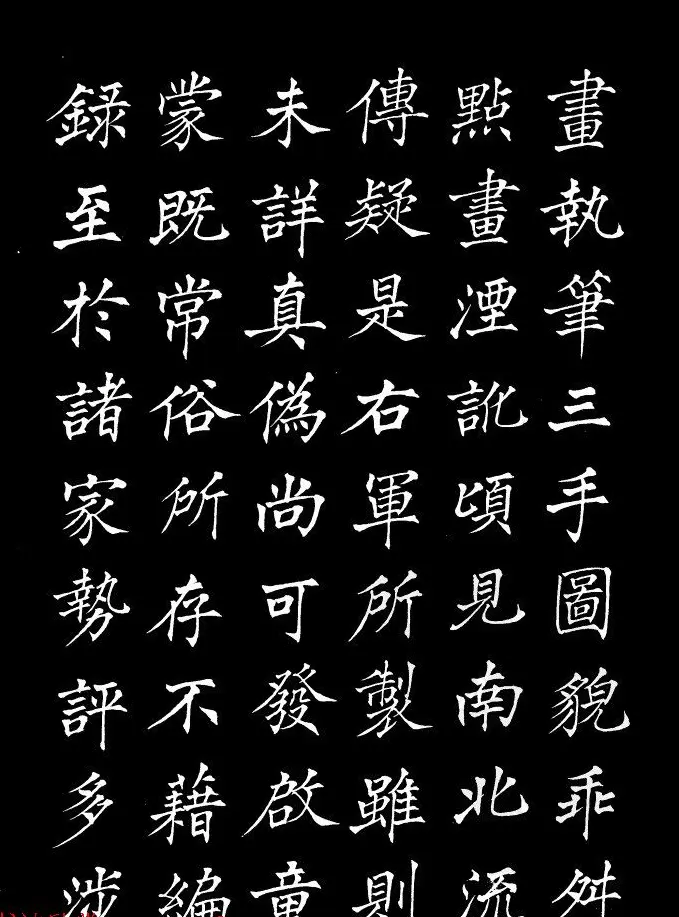 畫執筆三手圖貌乖舛
點畫湮訛頃見南北流
傳疑是右軍所製雖則
未詳真偽尚可發啟童
蒙既常俗所存不藉編
録至於諸家勢評多涉